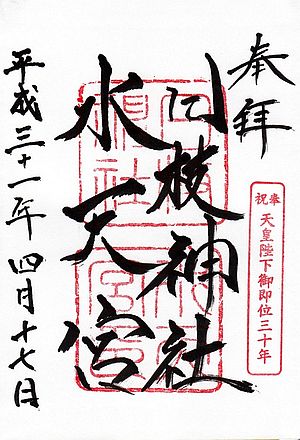 奉拝
日枝神社
水天宮
平成三十一年四月十七日
奉祝
天皇陛下御即位三十年